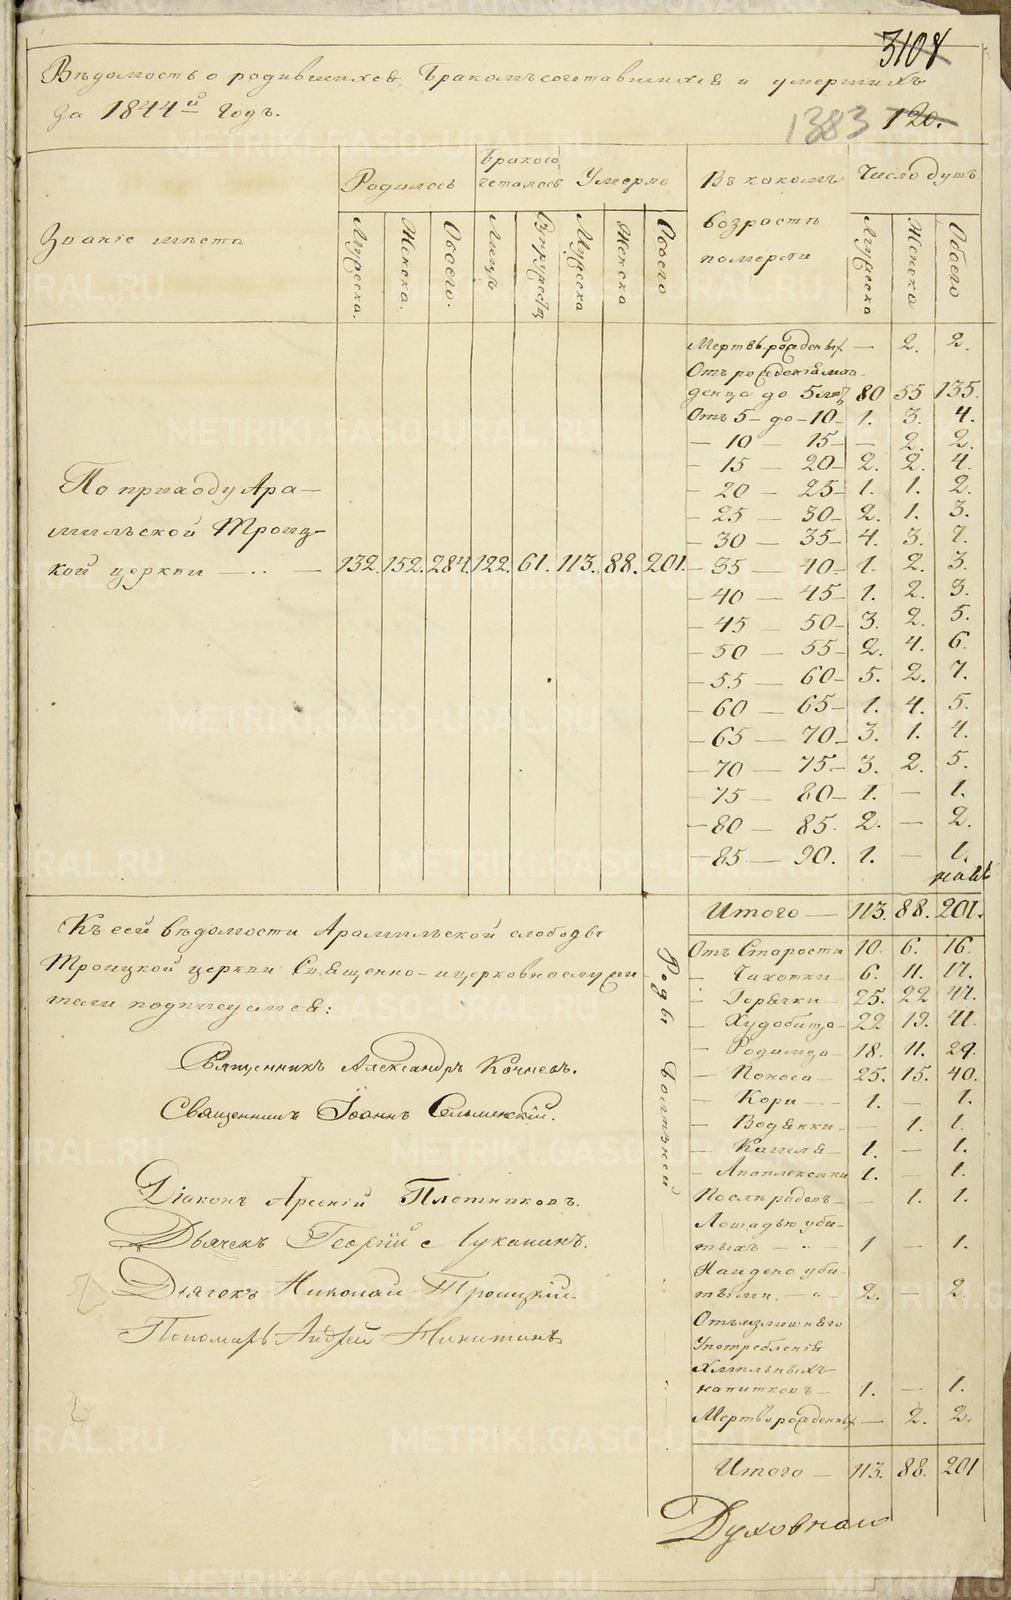 3101
Вѣдомость о родившихся, бракомъсочетавшихся и умершихъ
за 1844й годъ.
1383 120.
Званіе мѣста
Родилось
Бракосо
четалось
Умерло
Въ какомъ
возрастѣ
померли
Число душъ
Мужеска.
Женска.
Обоего.
Лицъ
Супружествъ
Мужеска
Женска
Обоего
Мужеска
Женска
Обоего
По приходу Ара-
мильской Троиц-
кой церкви — .. — 132. 152. 284. 122. 61. 113. 88. 201.
Мертвърожденныхъ — 2. 2.
Отъ рожденія мла-
денца до 5 лѣтъ 80 55 135.
Отъ 5 - до - 10 - 1. 3. 4.
— 10 — 15 - — 2. 2.
— 15 — 20 - 2. 2. 4.
— 20 — 25 - 1. 1. 2.
— 25 — 30 - 2. 1. 3.
— 30 — 35 - 4. 3. 7.
— 35 — 40 - 1. 2. 3.
— 40 — 45 - 1. 2. 3.
— 45 — 50 - 3. 2. 5.
— 50 — 55 - 2. 4. 6.
— 55 — 60 - 5. 2. 7.
— 60 — 65 - 1. 4. 5.
— 65 — 70 - 3. 1. 4.
— 70 — 75 - 3. 2. 5.
— 75 — 80 - 1. — 1.
— 80 — 85. 2. — 2.
— 85 — 90. 1. — 1.
Итого — 113. 88. 201.
Къ сей вѣдомости Арамильской слободы
Троицкой церкви Священно-ицерковнослужи
тели подписуемся:
Священникъ Александръ Кочневъ.
Священникъ Іоаннъ
Діаконъ Арсеній Плотниковъ.
Дьячекъ Георгій Луканинъ.
Дьячокъ Николай Троицкій.
Пономарь Андрей Никитинъ
Родъ болѣзней
Отъ Старости 10. 6. 16.
— Чахотки — 6. 11. 17.
— Горячки — 25. 22 47.
— Худобища — 22 19. 41.
— Родимца — 18. 11. 29.
— Поноса — 25. 15. 40.
— Кори — 1. — 1.
— Водянки — — 1. 1.
— Кашля — 1. — 1.
— Апоплексики 1. — 1.
Послѣ родовъ — — 1. 1.
Лошадью уби-
тыхъ — „ — 1 — 1.
Найдено уби-
тыми. — „ — 2. — 2.
Отъизлишняго
Употребленія
хмѣльныхъ
напитковъ — 1. — 1.
Мертворожденныхъ — 2. 2.
Итого — 113. 88. 201
Духовнаго
METRIKI.GASO-URAL.RU